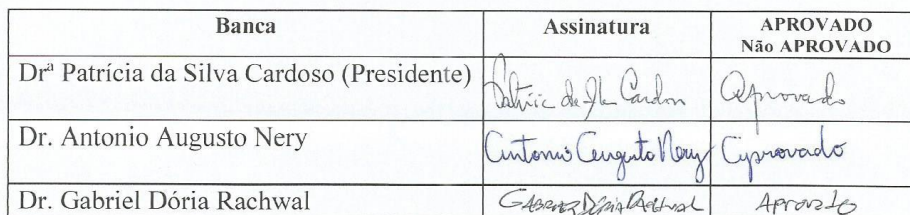 Banca Assinatura APROVADO
Não APROVADO
Drª Patrícia da Silva Cardoso (Presidente) Patrícia da Silva Cardoso Aprovado
Dr. Antonio Augusto Nery Antonio Augusto Nery Aprovado
Dr. Gabriel Dória Rachwal Gabriel Dória Rachwal Aprovado